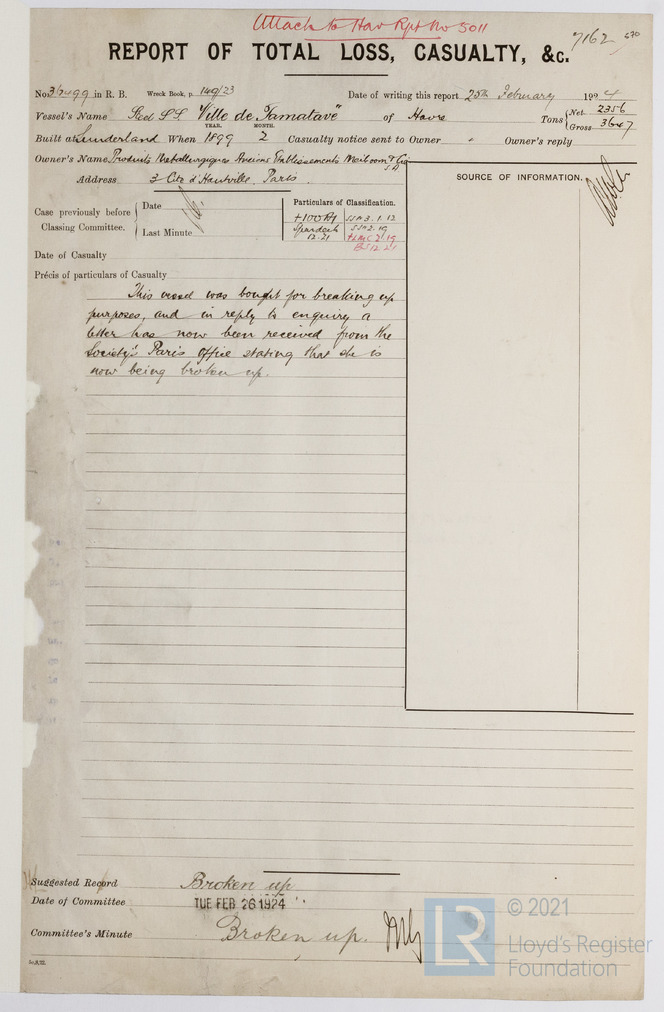 Attach to Hav Rpt No 5011
7162
REPORT OF TOTAL LOSS, CASUALTY, &c.
No. 36499 in R. B. Wreck Book, p. 149/23 Date of writing this report 25th February 1924
Vessel's Name Steel SS "Ville de Tamatave" of Havre Tons { Net 2356
Gross 3647
YEAR. MONTH.
Built at Sunderland When 1899 2 Casualty notice sent to Owner " Owner's reply
Owner's Name Produits Metallurgiques Anciens Etablissements & Cie
S A
Address 3 Cité d'Hauteville, Paris.
SOURCE OF INFORMATION.
Case previously before Classing Committee. { Date
Last Minute
Particulars of Classification.
+100A1 SS No 3. 1. 12
12.21 SS No 2. 19
+LMC 2.19
BS 12.21
Date of Casualty
Précis of particulars of Casualty
This vessel was bought for breaking up
purposes, and in reply to enquiry a
letter has now been received from the
Society's Paris Office stating that she is
now being broken up.
Suggested Record Broken up
Date of Committee TUE FEB 26 1924
Committee's Minute Broken up.
© 2021
LR Lloyd's Register
Foundation